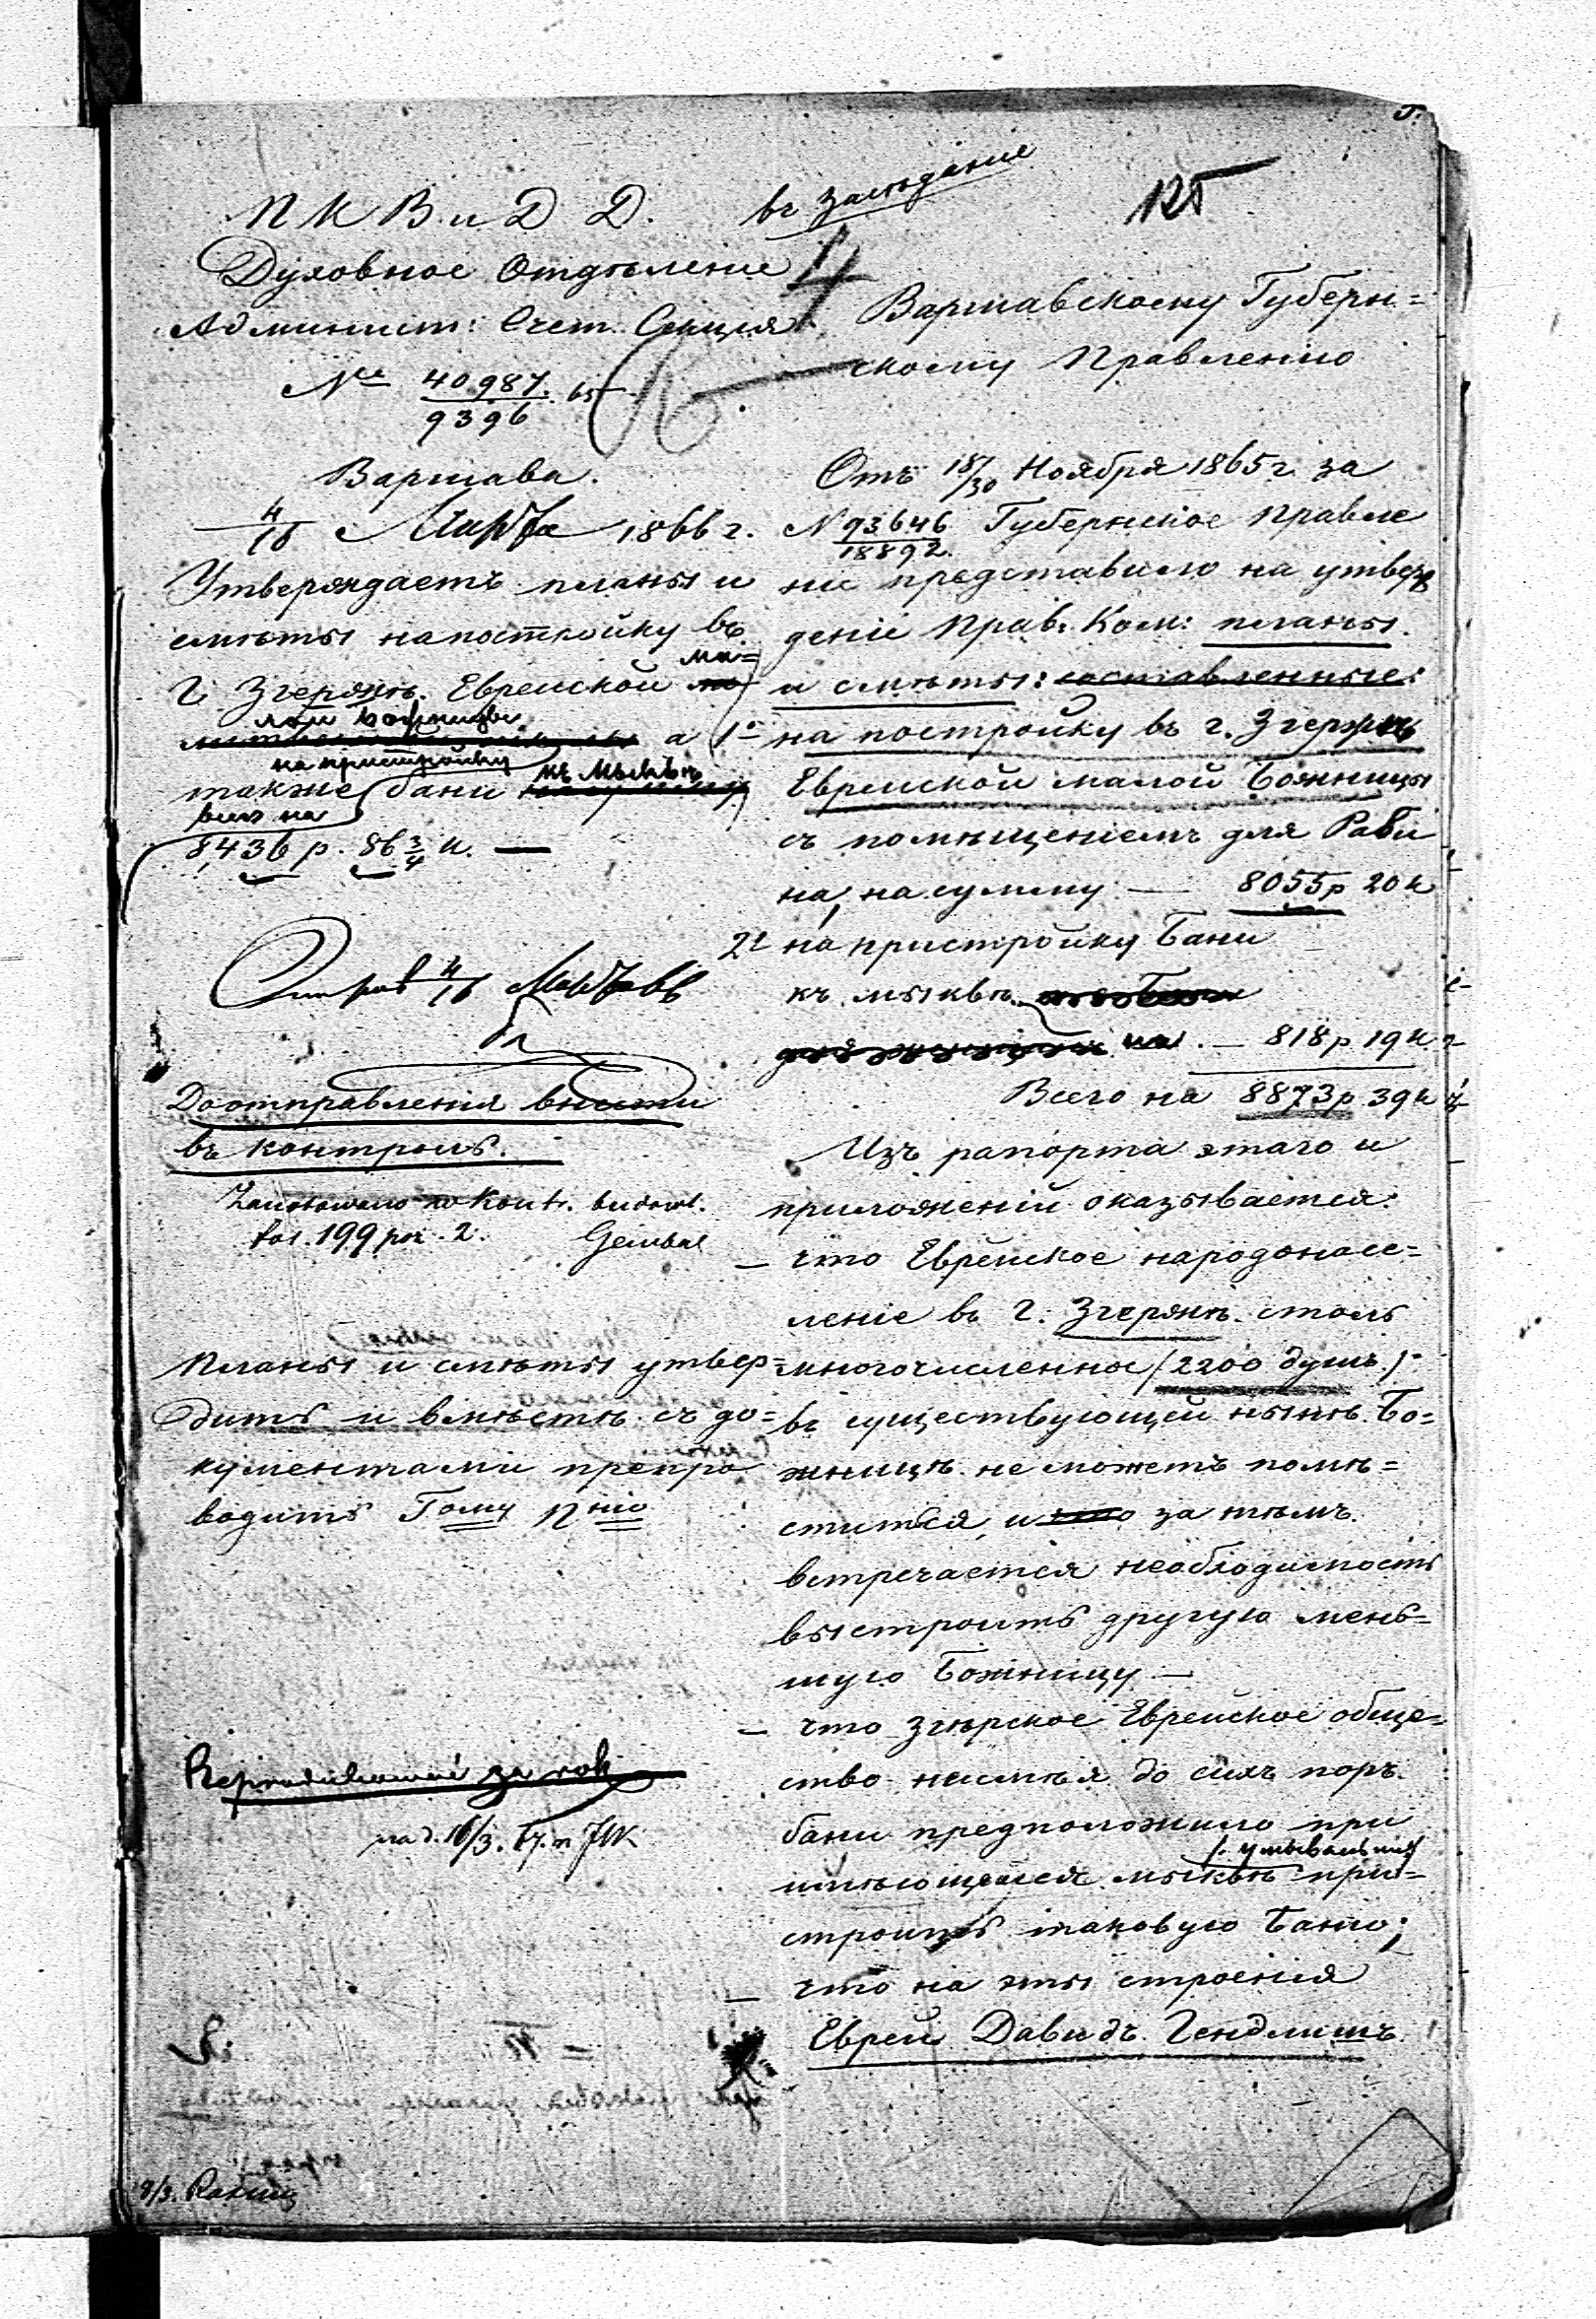 125
П К В и Д Д.
въ засѣданіе
Духовное Отдѣленіе
4
Админист: Счет. Секція
№ 40987/9396 65
Варшава.
4/16 Марта 1866 г.
Утверждаетъ планы и
смѣты на постройку въ
г. Згержѣ. Еврейской ма=
лой божницы а
также на пристройку бани къ мыквѣ
всего на
8,436 р. 86 3/4 к. —
Отправ 4/16 Марта 66
До отправленія внести
въ контроль.
Zanotowano w Kontr. budowl.
fol. 199 poz. 2.
Планы и смѣты утвер=
дить и вмѣстѣ съ до=
кументами препро
водить Гому Пнію
за rok
на д. 16/3.
8/3.
Варшавскому Губерн=
скому Правленію
Отъ 18/30 Ноября 1865 г. за
N 93646/18892. Губернское Правле
ніе представило на утверж
деніе Прав: Ком: планы
и смѣты: составленные:
1о на постройку въ г. Згержѣ
Еврейской малой Божницы
съ помѣщеніемъ для Раби
на, на сумму — 8055 р 20 к
2е на пристройку Бани
къ мыквѣ
на. — 818 р 19 к
Всего на 8873 р 39 к
Изъ рапорта этаго и
приложеній оказывается:
— что Еврейское народонасе=
леніе въ г. Згержѣ. столь
многочисленное /2200 душъ./
въ существующей нынѣ. Бо=
жницѣ не можетъ помѣ=
ститься, и за тѣмъ.
встречается необходимость
выстроить другую мень=
шую Божницу —
— что Згѣрское Еврейское обще=
ство неимѣя до сихъ поръ.
бани предположило при
имѣющейся мыквѣ /: умывальни:/ при=
строить таковую Баню;
— что на эты строенія
Еврей Давидъ. Гендлишъ.